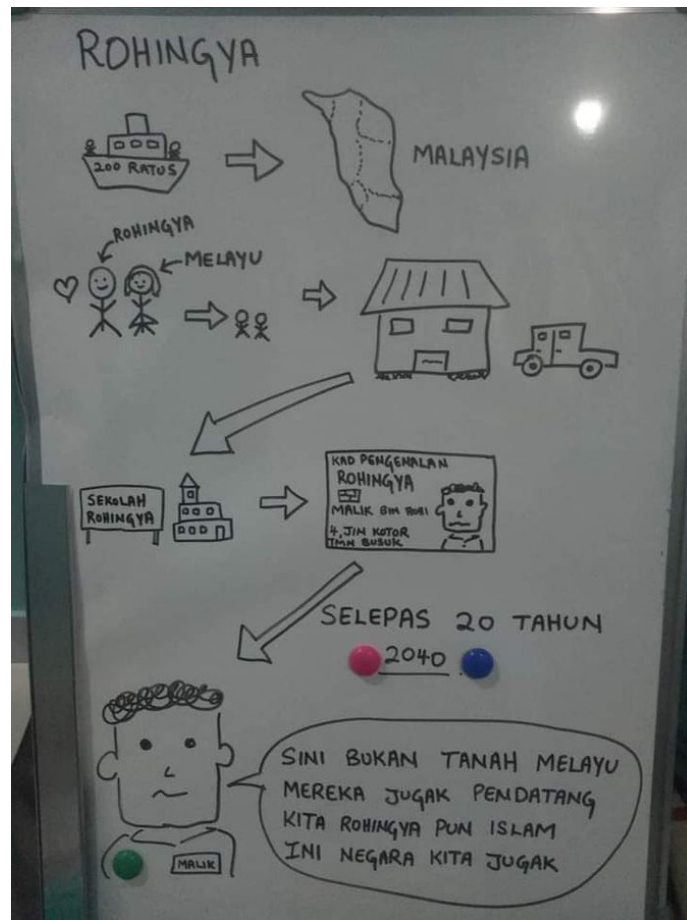 ROHINGYA
200 RATUS
MALAYSIA
ROHINGYA
MELAYU
SEKOLAH
ROHINGYA
KAD PENGENALAN
ROHINGYA
MALIK BIN ROBI
4, JLN KOTOR
TMN BUSUK
SELEPAS 20 TAHUN
2040
SINI BUKAN TANAH MELAYU
MEREKA JUGAK PENDATANG
KITA ROHINGYA PUN ISLAM
INI NEGARA KITA JUGAK
MALIK